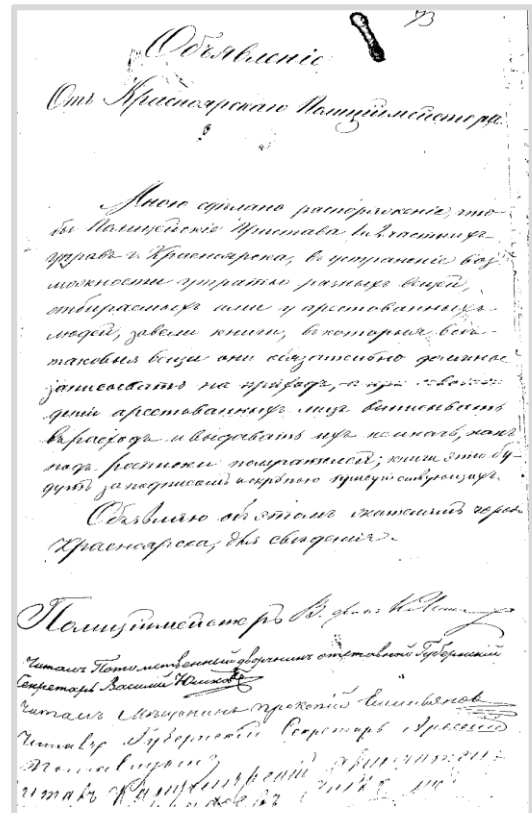 73
Объявленіе
Отъ Красноярскаго Полицiймейстера.
Мною сдѣлано распоряженіе, что-
бы Полицейскіе Пристава и Участки
управъ г. Красноярска, въ устраненіе воз
можности утраты разныхъ вещей,
отбираемыхъ ими у арестованныхъ
людей, завели книги, въ которыя всѣ
таковыя вещи они обязательно должны
записывать на приходъ, а при
деніи арестованныхъ лицъ выписывать
въ расходъ и выдавать ихъ не иначе, какъ
подъ росписки получателей; книги эти бу-
дутъ за подписомъ и скрѣпою присутствующихъ.
Объявляю объ этомъ жителямъ города
Красноярска, для свѣденія.
Полицiймейстеръ В. фонъ
Читалъ Потомственный дворянинъ отставной Губернскій
Секретарь Василій
Читалъ Мѣщанинъ Прокопій Емильяновъ
Читалъ Губернскій Секретарь